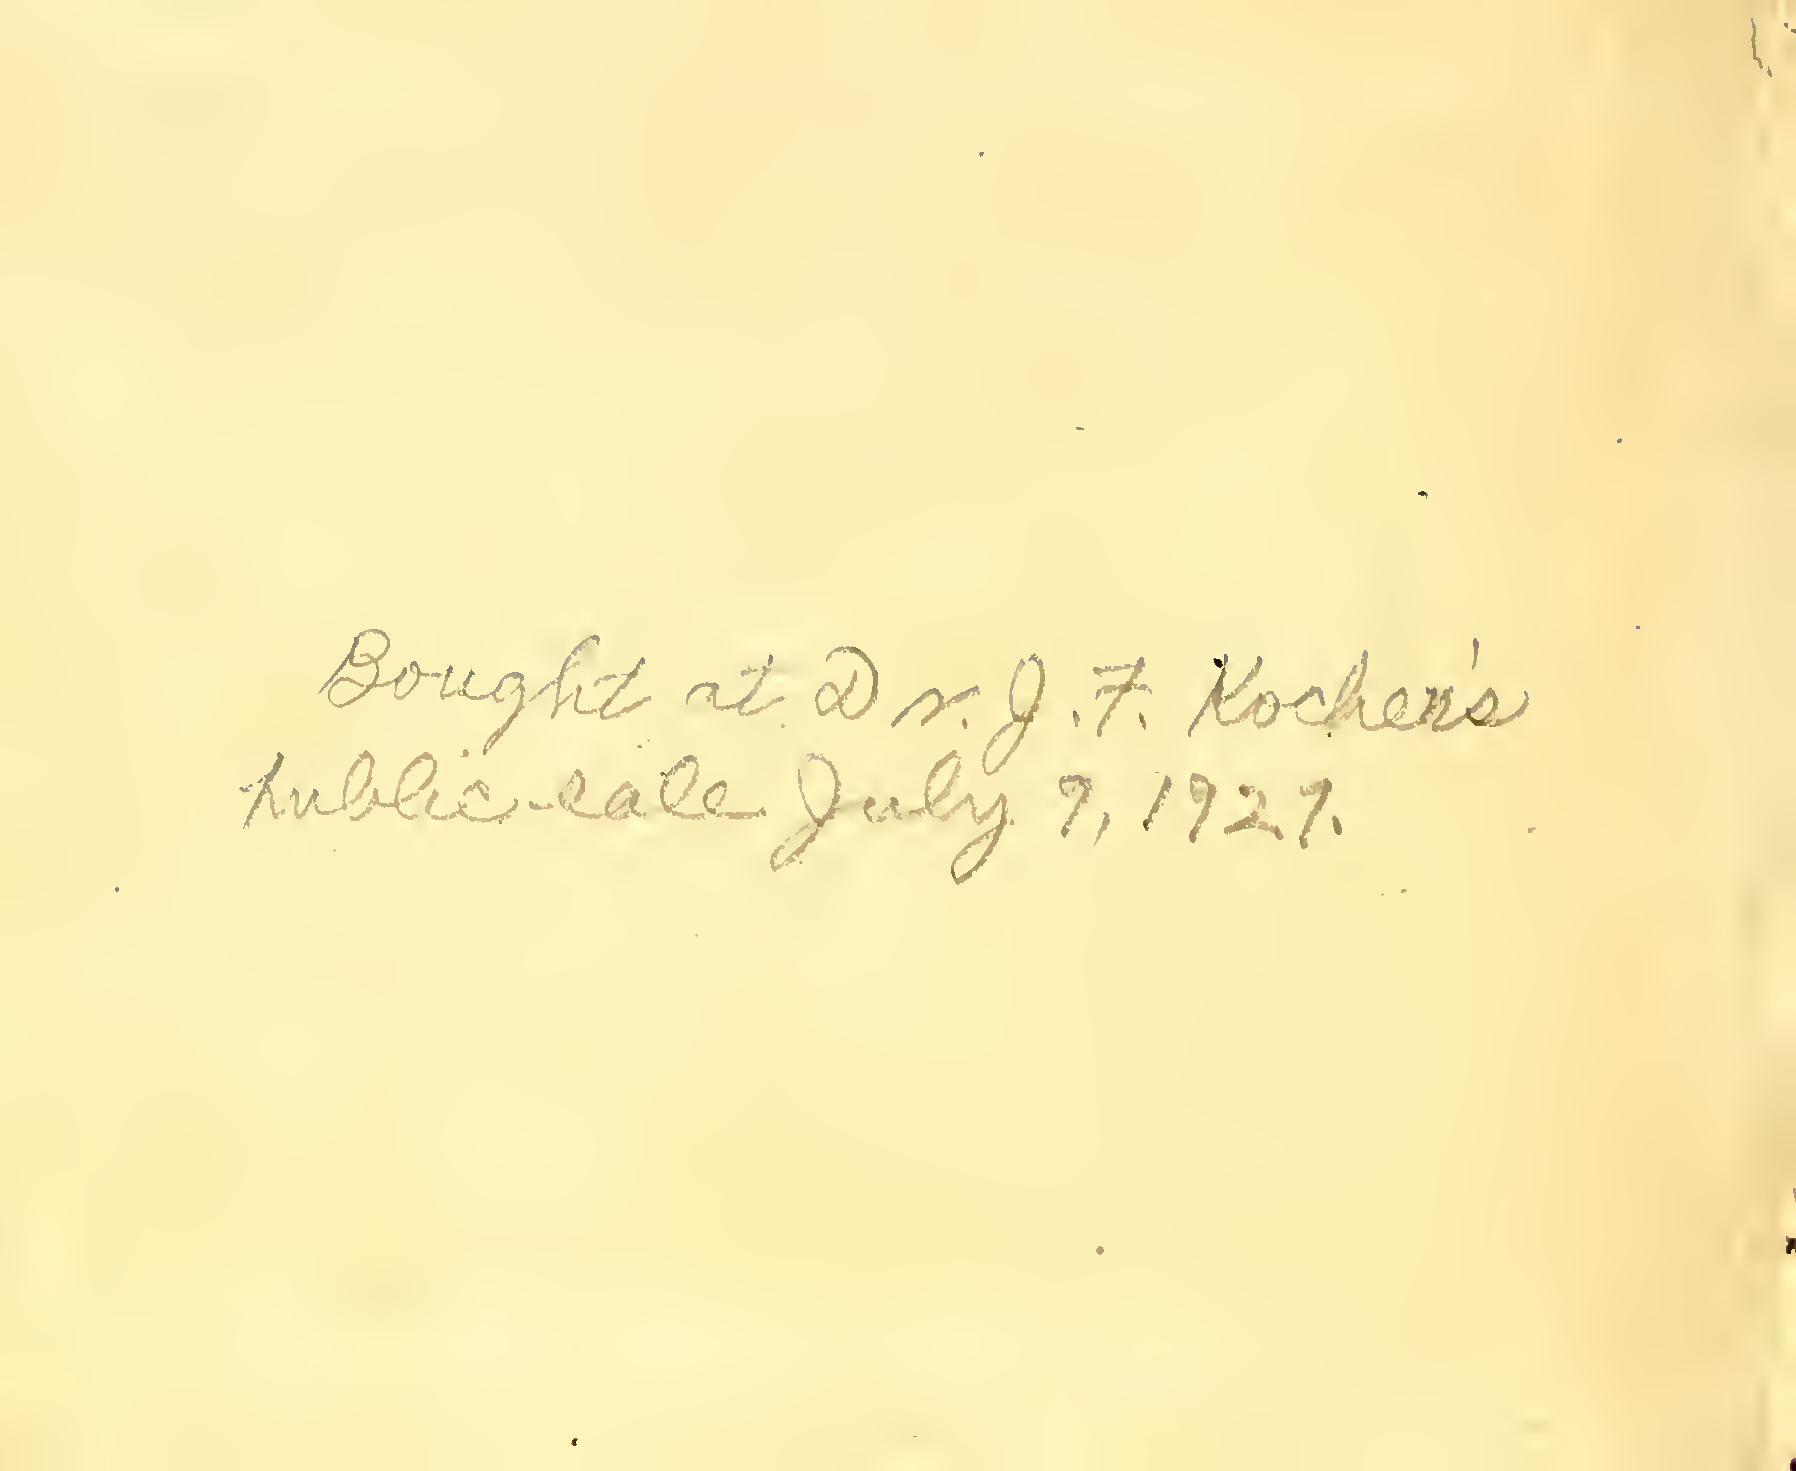 Bought at Dr. J. F. Kocher's
public sale July 9, 1927.